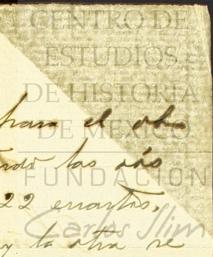 CENTRO DE
ESTUDIOS
DE HISTORIA
DE MÉXICO
FUNDACIÓN
Carlos Slim
para el ob-
las dos
22 cuartos,
y la otra se